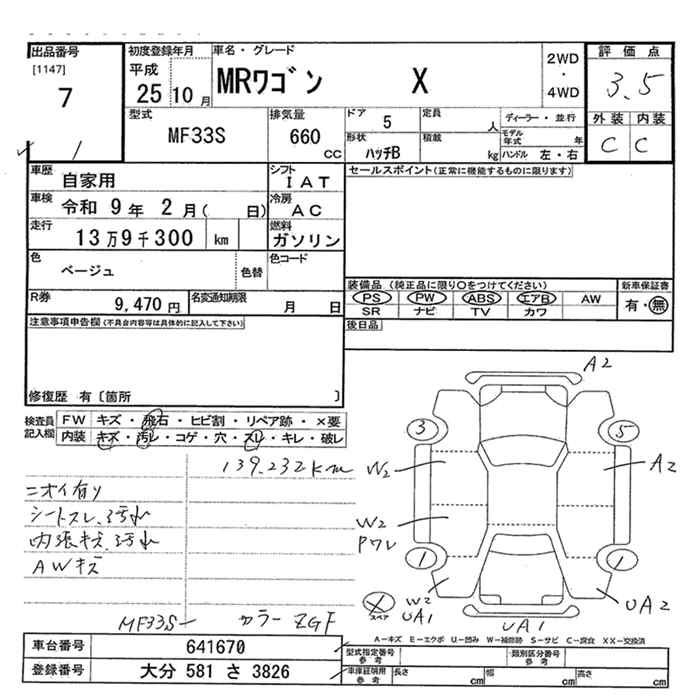 出品番号
[1147]
7
初度登録年月
平成
25 10 月
車名・グレード
MRワゴン X
2WD
・
4WD
評価点
3.5
外装 内装
C C
型式
MF33S
排気量
660
CC
ドア
5
形状
ハッチB
定員
人
積載
kg
ディーラー・並行
モデル年式 年
ハンドル 左・右
車歴
自家用
車検
令和 9 年 2 月( 日)
走行
13万9千300 km
シフト
IAT
冷房
AC
燃料
ガソリン
色
ベージュ
色替
色コード
R券
9,470 円
名変通知期限
月 日
セールスポイント(正常に機能するものに限ります)
装備品(純正品に限り○をつけてください)
PS PW ABS エアB AW
SR ナビ TV カワ
新車保証書
有・無
後日品
注意事項申告欄(不具合内容等は具体的に記入して下さい)
修復歴 有〔箇所 〕
検査員記入欄
FW キズ・飛石・ヒビ割・リペア跡・×要
内装 キズ・汚レ・コゲ・穴・スレ・キレ・破レ
139.232km
ニオイ有り
シートスレ、汚れ
内張キズ、汚れ
AWキズ
MF33S- カラー ZGF
A2
3
5
W2
A2
W2
Pワレ
1
1
W2
UA1
スペア
UA1
UA2
A-キズ E-エクボ U-凹み W-補修跡 S-サビ C-腐食 XX-交換済
車台番号
641670
登録番号
大分 581 さ 3826
型式指定番号
参考
類別区分番号
参考
車庫証明用
参考
長さ cm
幅 cm
高さ cm